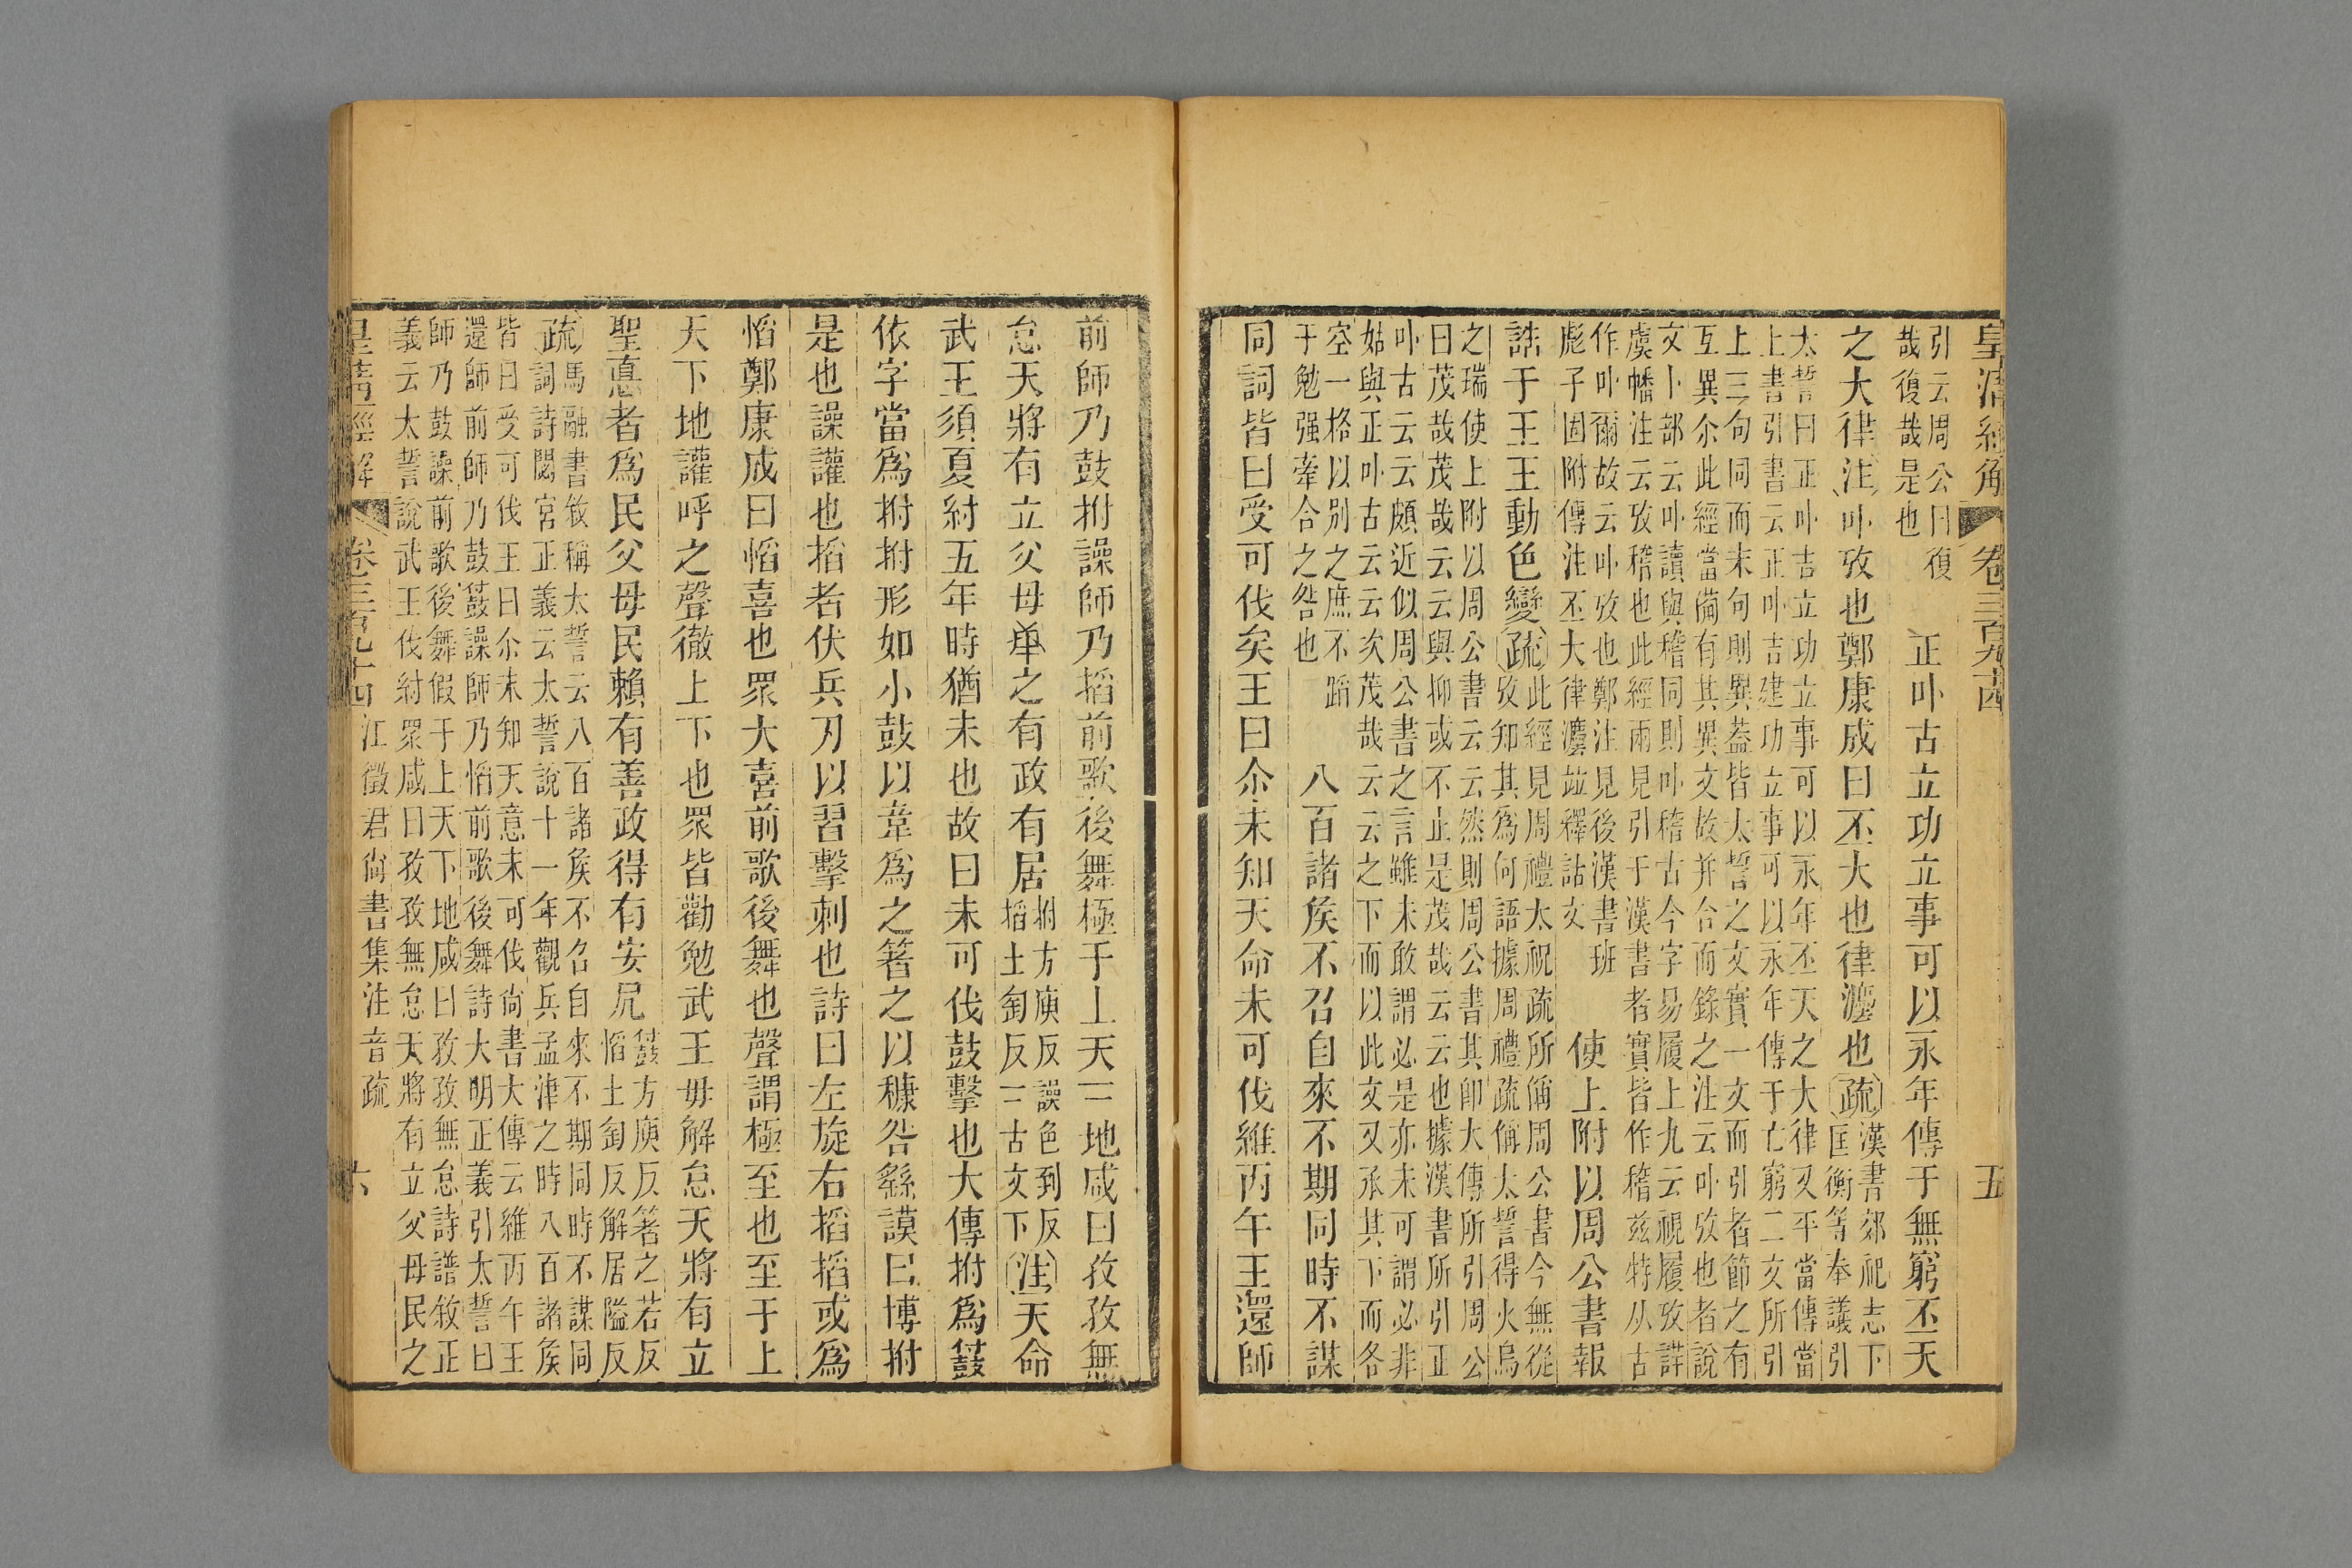 皇清經解 卷三百九十四 五
引云周公曰復
哉復哉是也
正卟古立功立事可以永年傳于無窮丕天
之大律注卟攷也鄭康成曰丕大也律灋也疏
漢書郊祀志下
匡衡等奉議引
太誓曰正卟吉立功立事可以永年丕天之大律又平當傳當
上書引書云正卟吉建功立事可以永年傳于亡窮二文所引
上三句同而末句則異蓋皆太誓之文實一文而引者節之有
互異尒此經當僃有其異文故并合而錄之注云卟攷也者說
文卜部云卟讀與稽同則卟稽古今字易履上九云視履攷詳
虞幡注云攷稽也此經兩見引于漢書者實皆作稽兹特从古
作卟爾故云卟攷也鄭注見後漢書班
彪子固附傳注丕大律灋竝釋詁文
使上附以周公書報
誥于王王動色變疏
此經見周禮太祝疏所偁周公書今無從
攷知其爲何語據周禮疏偁太誓得火烏
之瑞使上附以周公書云云然則周公書其卽大傳所引周公
曰茂哉茂哉云云與抑或不止是茂哉云云也據漢書所引正
卟古云云頗近似周公書之言雖未敢謂必是亦未可謂必非
姑與正卟古云云次茂哉云云之下而以此文又承其下而各
空一格以別之庶不蹈
于勉强牽合之咎也
八百諸矦不召自來不期同時不謀
同詞皆曰受可伐矣王曰尒未知天命未可伐維丙午王還師
前師乃鼓拊譟師乃搯前歌後舞極于上天下地咸曰孜孜無
怠天將有立父母民之有政有居
拊方庾反譟色到反
搯土匋反丅古文下
注天命
武王須夏紂五年時猶未也故曰未可伐鼓擊也大傳拊爲𡔷
依字當爲拊拊形如小鼓以韋爲之箸之以穅咎繇謨曰博拊
是也譟讙也搯者伏兵刃以習擊刺也詩曰左旋右搯搯或爲
慆鄭康成曰慆喜也眾大喜前歌後舞也聲謂極至也至于上
天下地讙呼之聲徹上下也眾皆勸勉武王毋解怠天將有立
聖悳者爲民父母民賴有善政得有安凥
𡔷方庾反箸之若反
慆土匋反解居隘反
疏
馬融書敘稱太誓云八百諸矦不召自來不期同時不謀同
詞詩閟宮正義云太誓說十一年觀兵孟津之時八百諸矦
皆曰受可伐王曰尒未知天意未可伐尙書大傳云維丙午王
還師前師乃鼓𡔷譟師乃慆前歌後舞詩大明正義引太誓曰
師乃鼓譟前歌後舞假于上天下地咸曰孜孜無怠詩譜敘正
義云太誓說武王伐紂眾咸曰孜孜無怠天將有立父母民之
皇清經解 卷三百九十四 江徵君尙書集注音疏 六